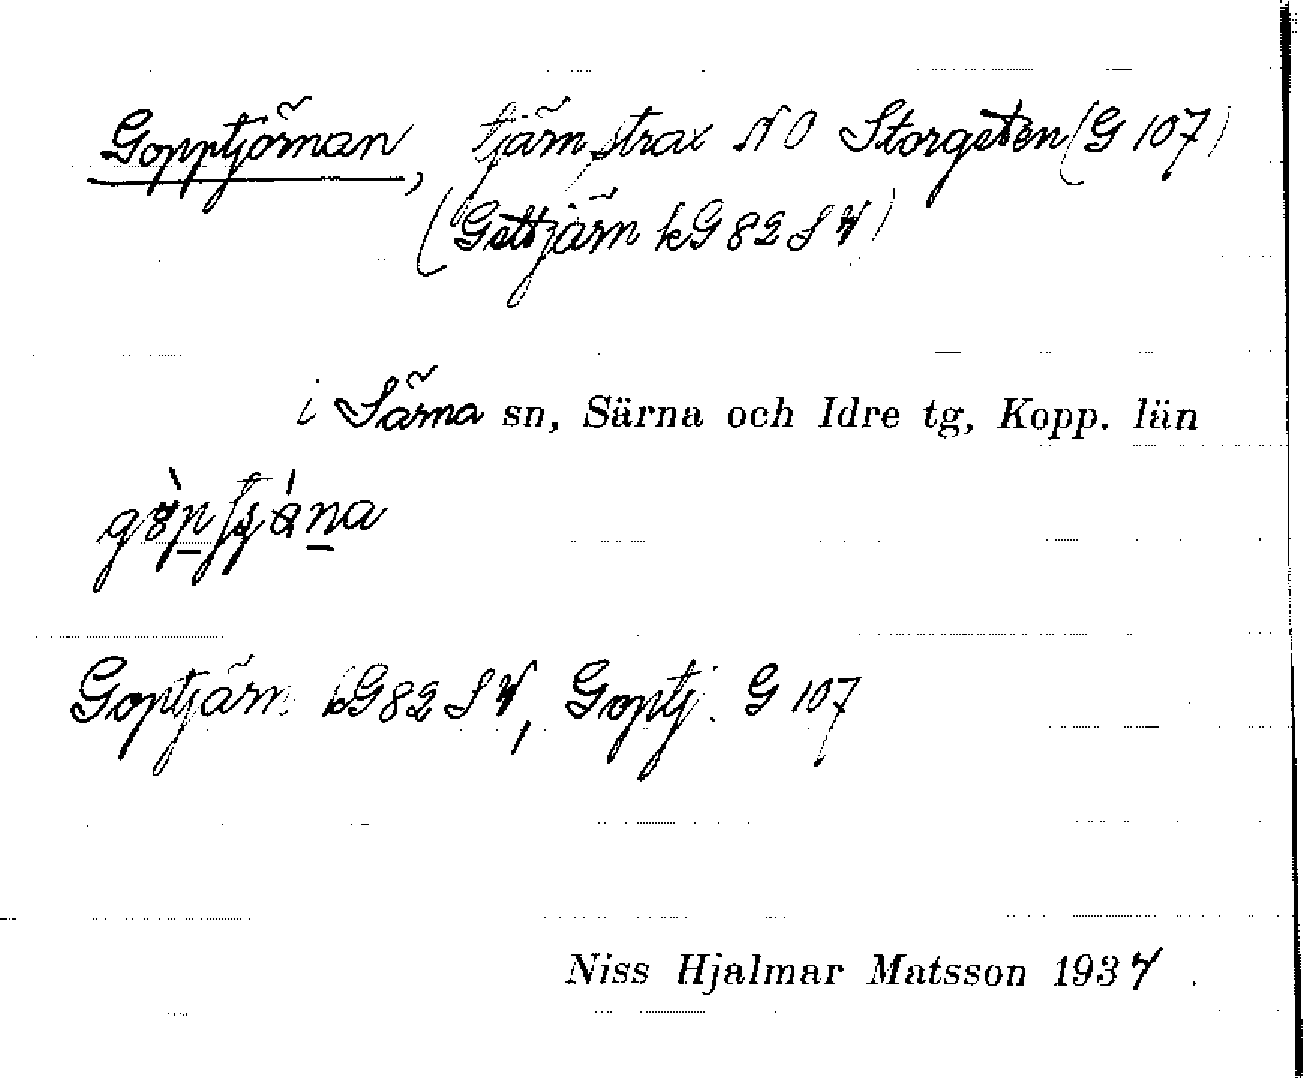 Gopptjärnan, tjärn strax NO Storgetën (G 107)
(Gettjärn kG 82 S V)
i Särna sn, Särna och Idre tg, Kopp. län
Goptjärn kG 82 S V, Goptj. G 107
Niss Hjalmar Matsson 1937.